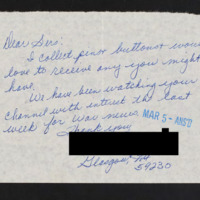 Dear Sirs:
I collect pins & buttons & would
love to receive any you might
have.
We have been watching your
channel with intrest the last
week for War news
MAR 5 - ANS'D
Thank you
Glasgow, Mt
59230